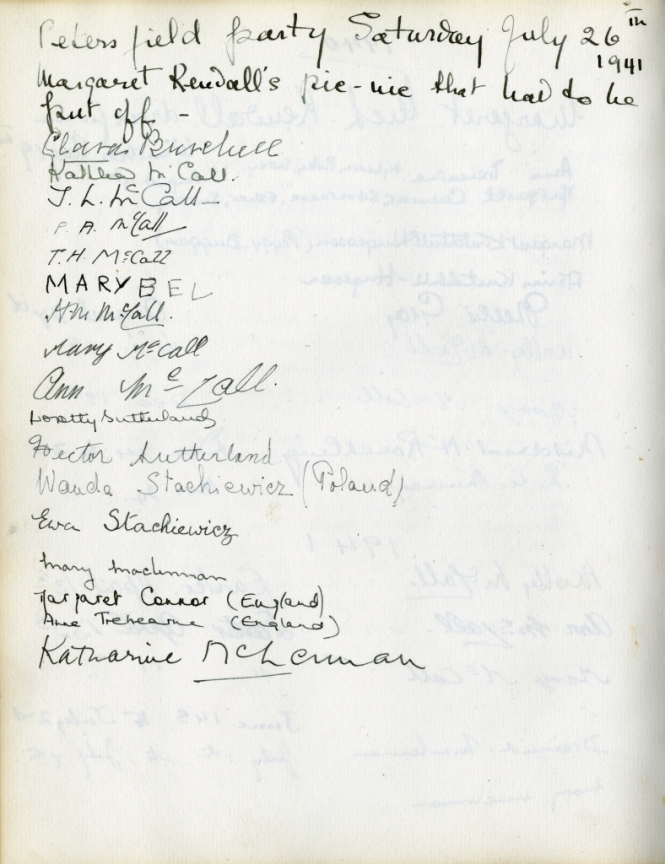 Petersfield party Saturday July 26th
1941
Margaret Kendall's pic-nic that had to be
put off -
Clara Burchell
Kathleen McCall.
J. L. McCall
P. A. McCall
T. H. McCall
MARYBEL
H M McCall.
Mary McCall
Ann McCall.
Loretty Sutherland
Hector Sutherland
Wanda Stachiewicz (Poland)
Ewa Stachiewicz
Mary Maclennan
Margaret Connor (England)
Anne Trehearne (England)
Katharine McLennan